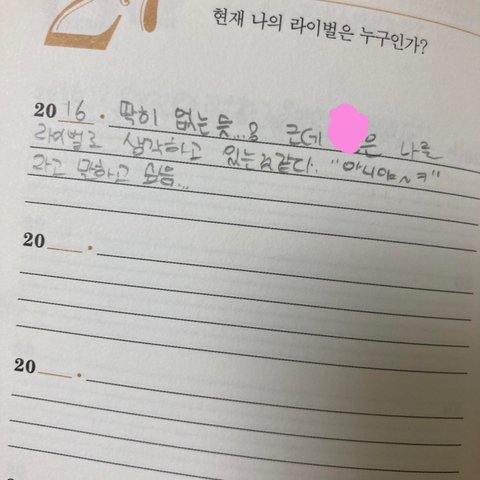 27
현재 나의 라이벌은 누구인가?
2016. 딱히 없는 듯...용 근데 은 나를
라이벌로 생각하고 있는것같다. "아니야~ㅋ"
라고 말하고 싶음...
20 .
20 .